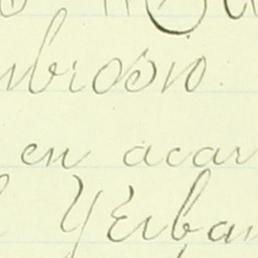 mbrosio
en acar
Yerba